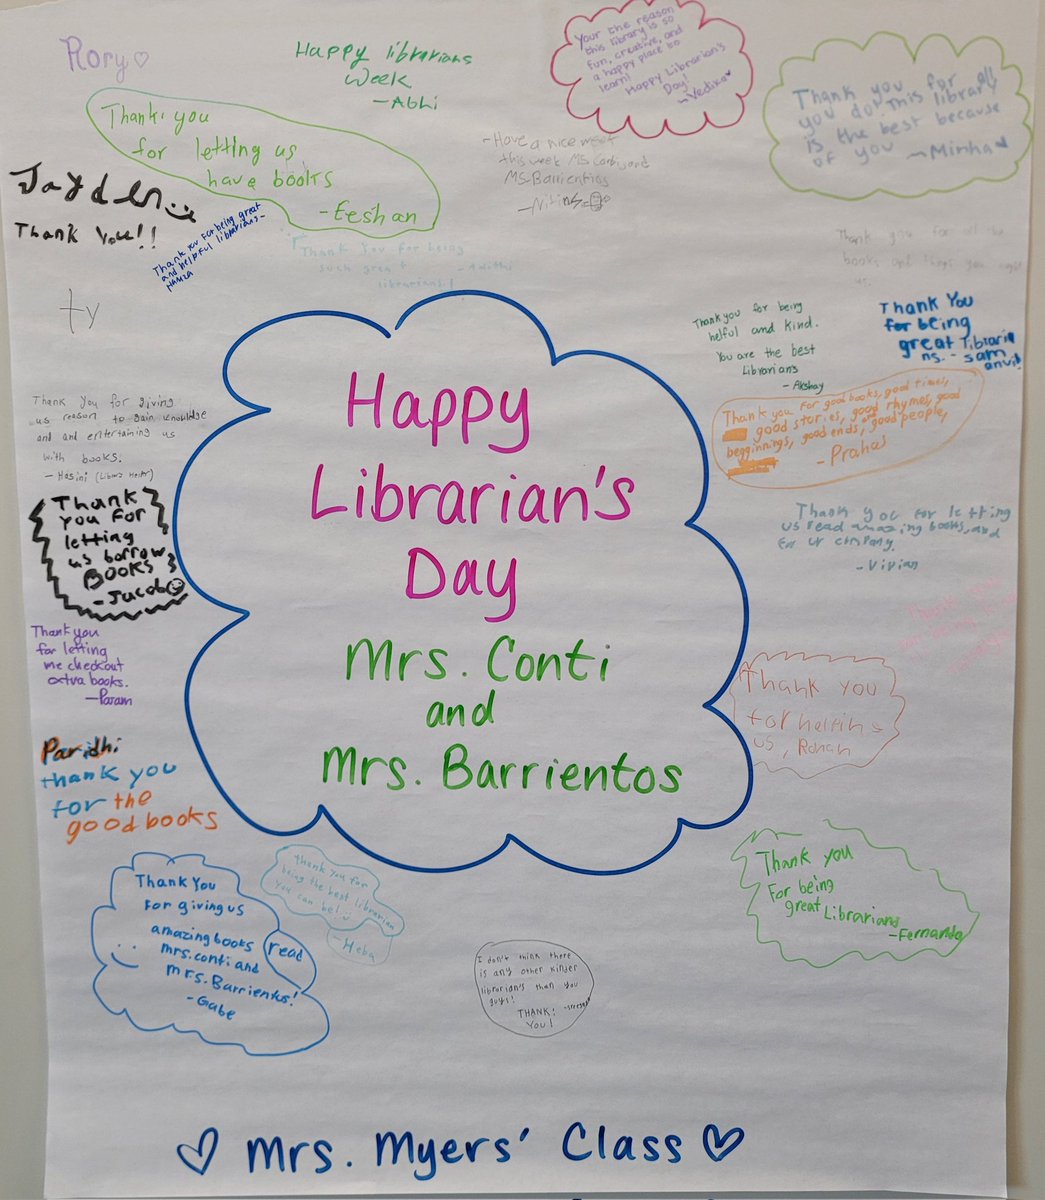 Rory
Happy librarians
week
-Abhi
Your the reason
this library is so
fun, creative, and
a happy place to
learn!
Happy Librarian's
Day!
~Vedika
Thank you for all
you do! This library
is the best because
of you ~Minha
Thank you
for letting us
have books
-Eeshan
-Have a nice week
this week MS.Conti,and
MS.Barrientos
Jayden
Thank You!!
Thank you for being great
and helpful librarians-
HAMZA
Thank You for being
such great
librarians!
ty
Thank you for all the
books
Thank you for being
helful and kind.
You are the best
Librarians
- Akshay
Thank You
for being
great libraria
ns. - sam
Thank you for giving
us reason to gain knowledge
and and entertaining us
with books.
- Hasini
Thank you for good books, good times,
good stories, good rhymes, good
begginnings, good ends, good people,
-Prahas
Thank
you for
letting
us borrow
Books
-Jacob
Thank you for letting
us read amazing books, and
for ur company.
-Vivian
Happy
Librarian's
Day
Mrs. Conti
and
Mrs. Barrientos
Thank you
for letting
me checkout
extra books.
-Param
Thank you
for
us, Rohan
Paridhi
thank you
for the
good books
Thank you
For being
great Librarians
-Fernando
Thank You
For giving us
amazing books read
mrs.conti and
mrs.Barrientos!
-Gabe
Thank you for
being the best librarian
you can be!
-Heba
I don't think there
is any other kinder
librarian's than you
guys!
THANK
YOU!
Mrs. Myers' Class